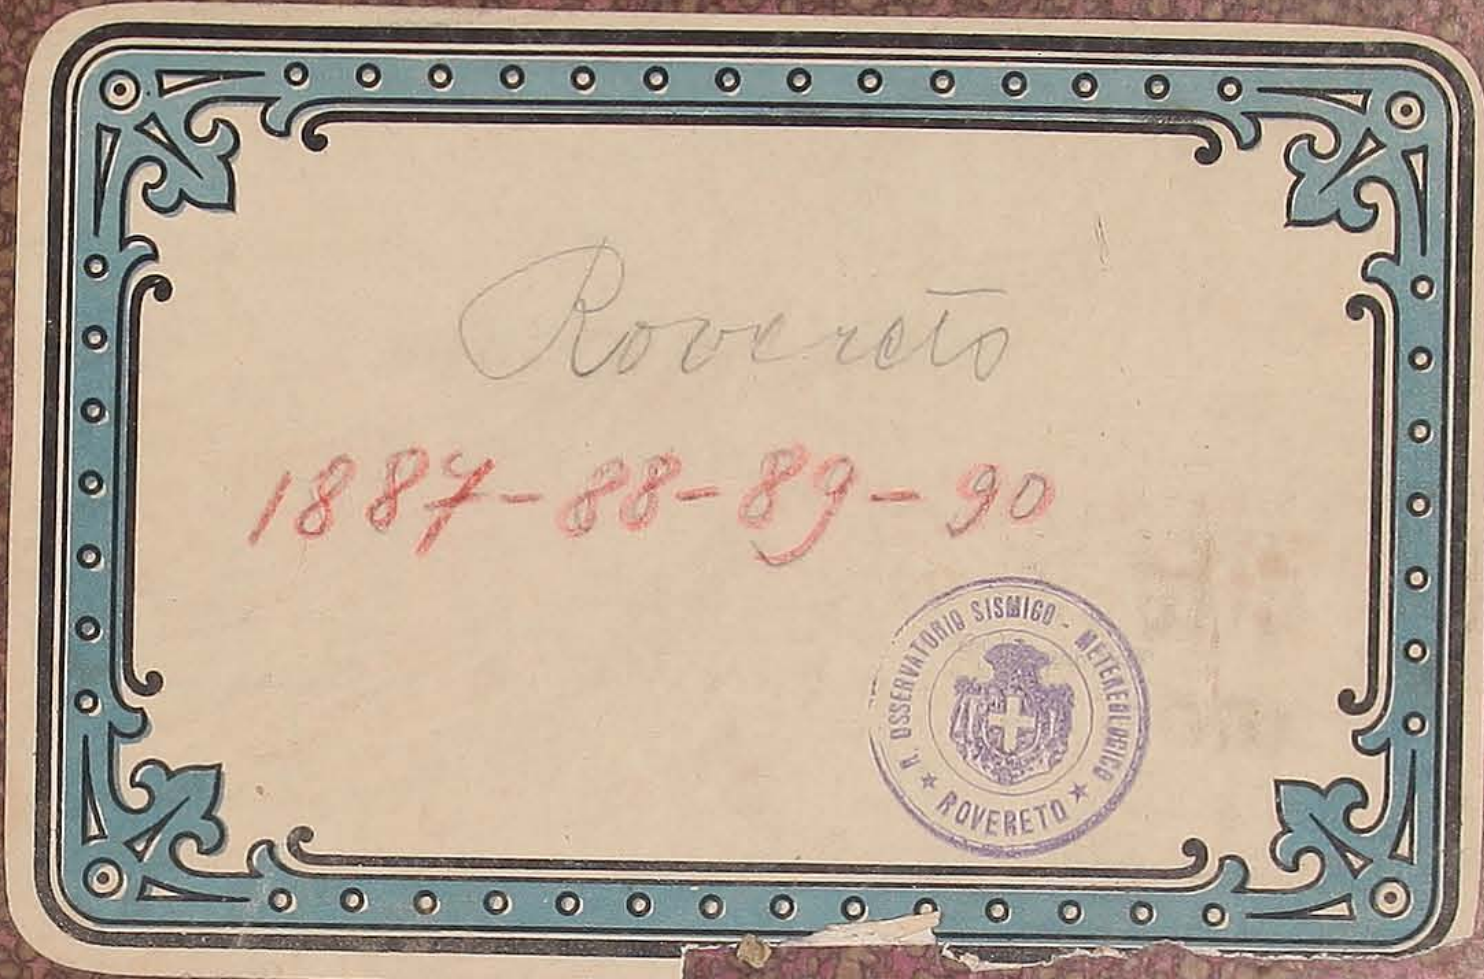 Rovereto
1887-88-89-90
R. OSSERVATORIO SISMICO - METEREOLOGICO
ROVERETO